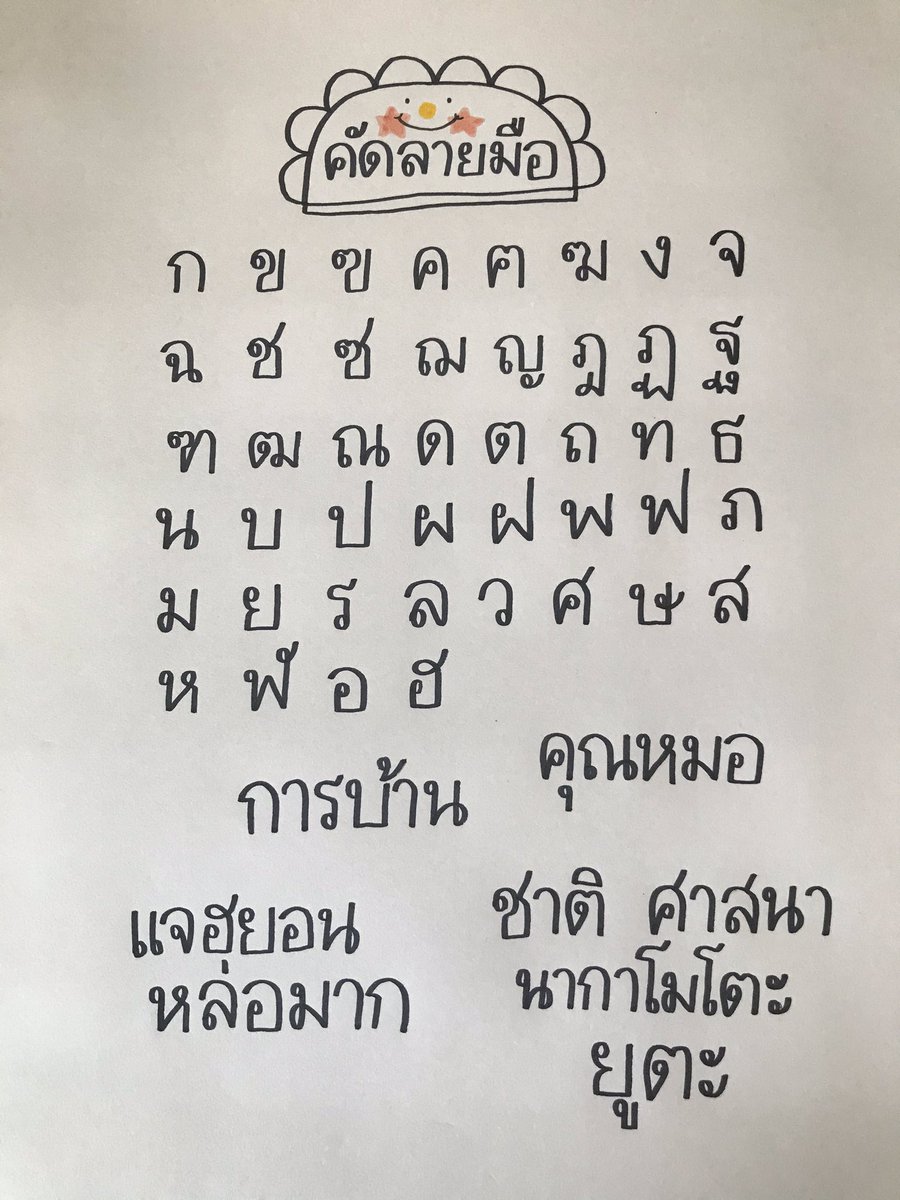 คัดลายมือ
ก ข ฃ ค ฅ ฆ ง จ
ฉ ช ซ ฌ ญ ฎ ฏ ฐ
ฑ ฒ ณ ด ต ถ ท ธ
น บ ป ผ ฝ พ ฟ ภ
ม ย ร ล ว ศ ษ ส
ห ฬ อ ฮ
คุณหมอ
การบ้าน
แจฮยอน
หล่อมาก
ชาติ ศาสนา
นากาโมโตะ
ยูตะ